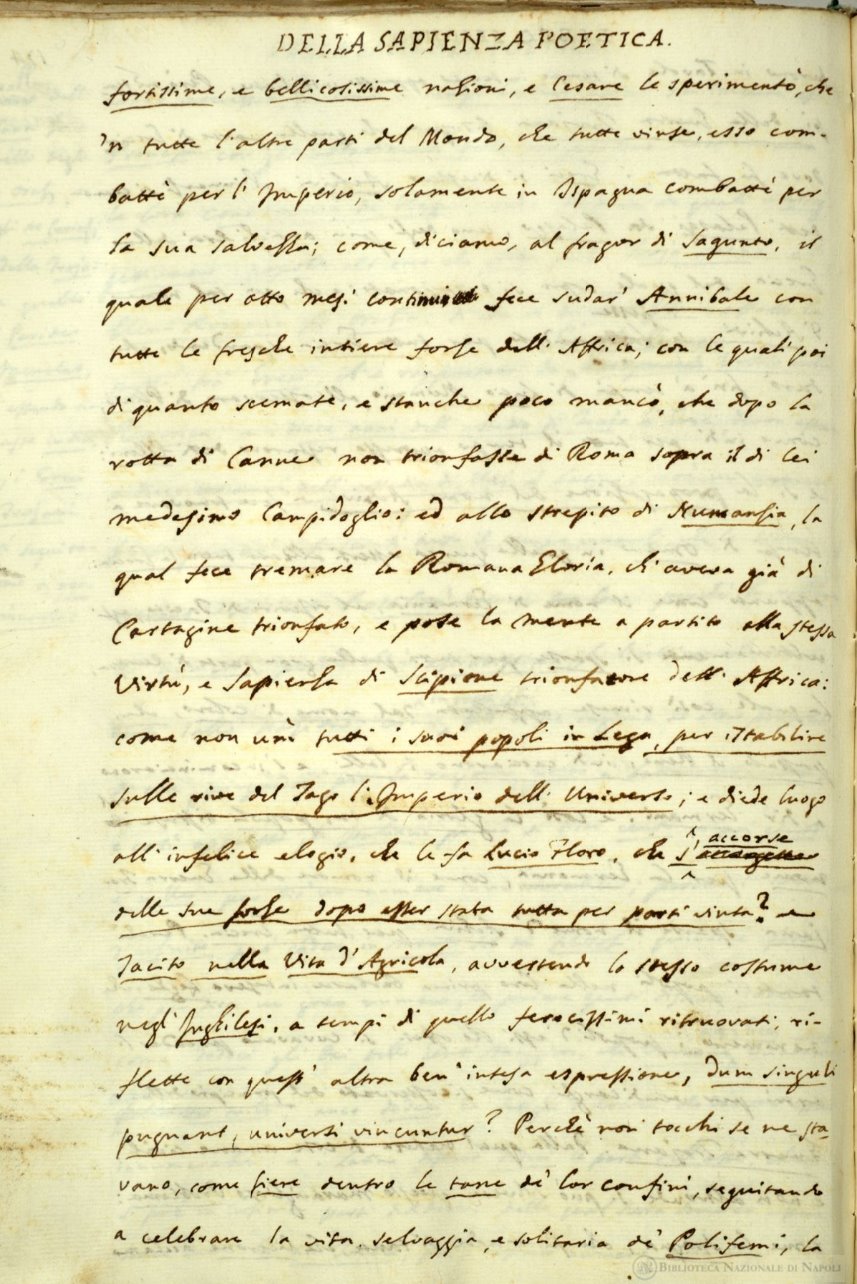 DELLA SAPIENZA POETICA.
fortissime, e bellicosissime nazioni, e Cesare le sperimentò, che
'n tutte l'altre parti del Mondo, che tutte vinse, esso com-
battè per l'Imperio, solamente in Ispagna combattè per
la sua salvezza; come, diciamo, al fragor di Sagunto, il
quale per otto mesi continui fece sudar' Annibale con
tutte le fresche intiere forze dell'Affrica; con le quali poi
di quanto scemate, e stanche poco mancò, che dopo la
rotta di Canne non trionfasse di Roma sopra il di lei
medesimo Campidoglio: ed allo strepito di Numanzia, la
qual fece tremare la Romana Gloria, ch'aveva già di
Cartagine trionfato, e pose la mente a partito alla stessa
Virtù, e Sapienza di Scipione trionfatore dell'Affrica:
come non unì tutti i suoi popoli in Lega, per istabilire
sulle rive del Tago l'Imperio dell'Universo; e diede luogo
all'infelice elogio, che le fa Lucio Floro, che s'accorse
delle sue forze dopo esser stata tutta per parti vinta? e
Tacito nella Vita d'Agricola, avvertendo lo stesso costume
negl'Inghilesi, a tempi di quello ferocissimi ritruovati, ri-
flette con quest'altra ben'intesa espressione, Dum singuli
pugnant, universi vincuntur? Perchè non tocchi se ne sta-
vano, come fiere dentro le tane de' lor confini, seguitando
a celebrare la vita selvaggia, e solitaria de' Polifemi, la
BIBLIOTECA NAZIONALE DI NAPOLI